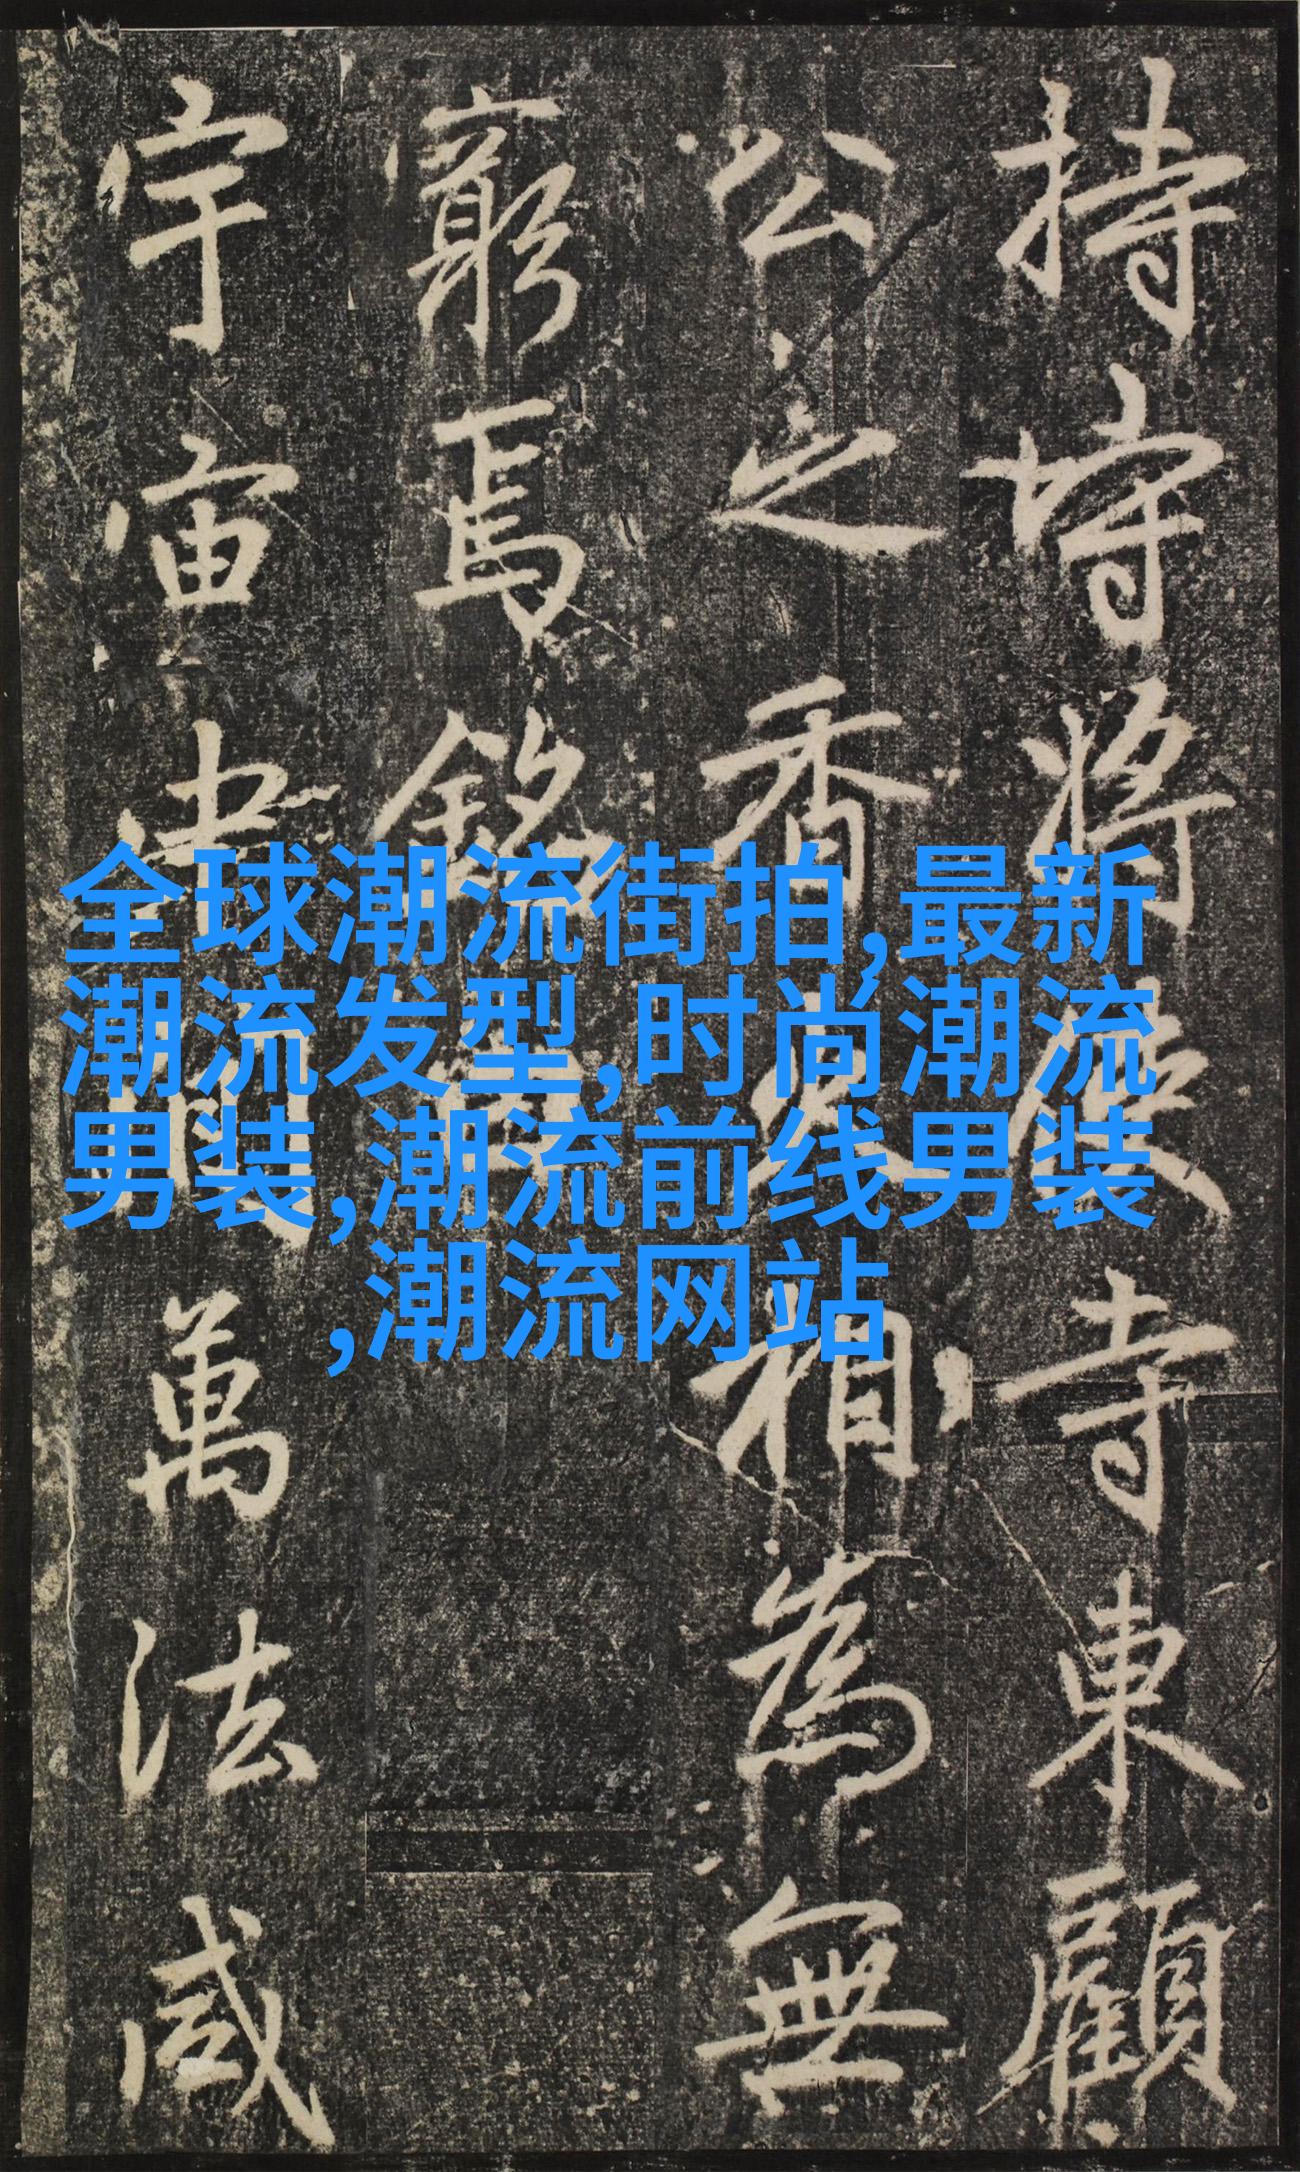 持將寺東顧
公之香火相為無
窮焉銘曰
宇宙間萬法咸
全球潮流街拍,最新
潮流发型,时尚潮流
男装,潮流前线男装
,潮流网站